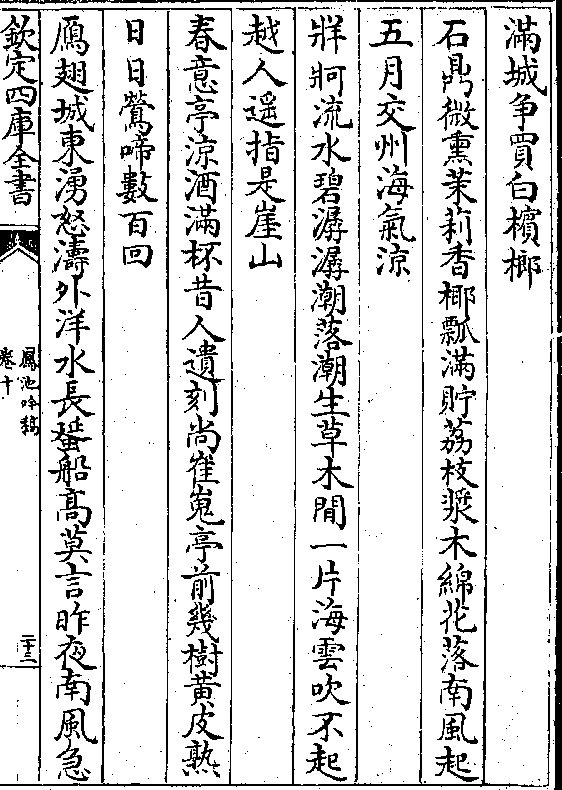 滿城争買白檳榔
石鼎微熏茉莉香椰瓢滿貯荔枝漿木綿花落南風起
五月交州海氣凉
牂牁流水碧潺潺潮落潮生草木間一片海雲吹不起
越人遥指是崖山
春意亭凉酒滿杯昔人遺刻尚崔嵬亭前幾樹黄皮熟
日日鶯啼數百回
鴈翅城東湧怒濤外洋水長蜑船高莫言昨夜南風急
欽定四庫全書
鳳池吟稿
卷十
二十三